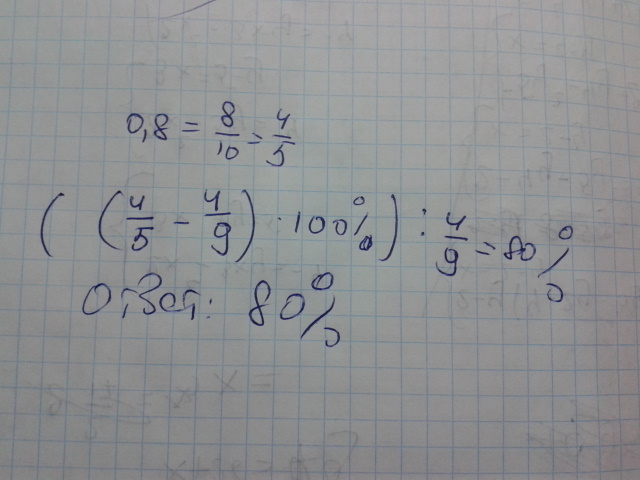 0,8 = 8/10 = 4/5
( (4/5 - 4/9) · 100% ) : 4/9 = 80%
Ответ: 80%